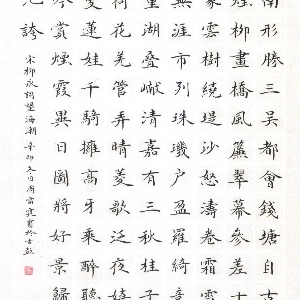 南形勝三吳都會錢塘自古
煙柳畫橋風簾翠幕參差十
家雲樹繞堤沙怒濤卷霜雪
無涯市列珠璣戶盈羅綺
重湖疊巘清嘉有三秋桂子
荷花羌管弄晴菱歌泛夜嬉
叟蓮娃千騎擁高牙乘醉聽
吟賞煙霞異日圖將好景歸
誇
宋柳永詞望海潮辛卯冬日周富